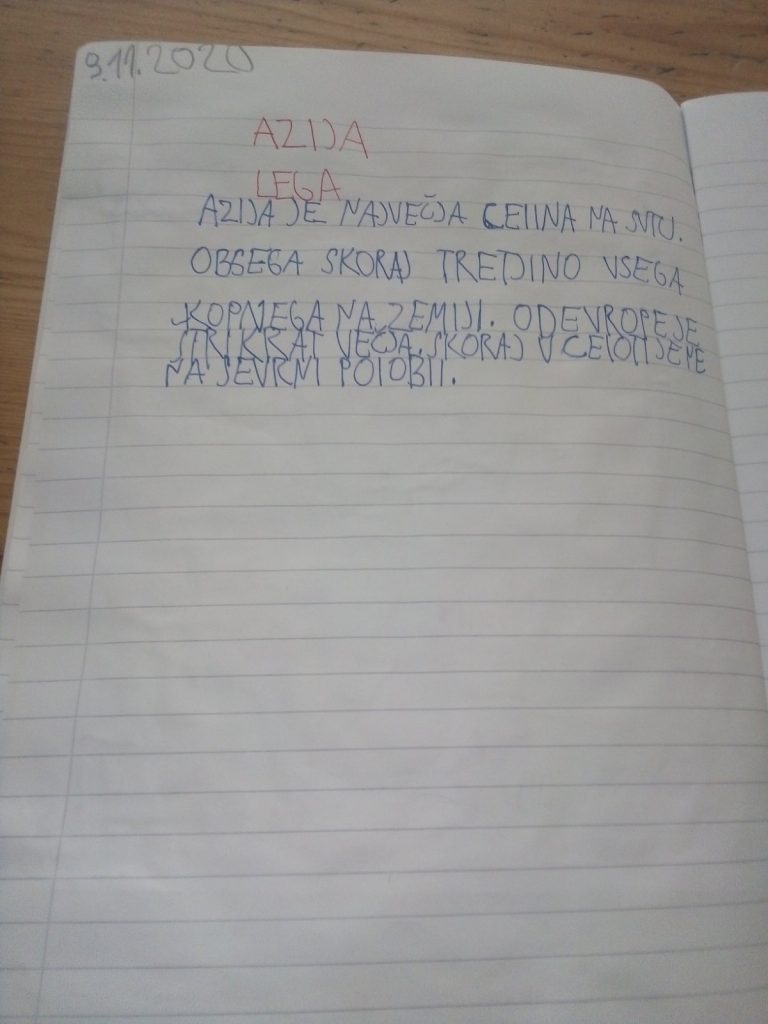 9.11.2020
AZIJA
LEGA
AZIJA JE NAJVEČJA CELINA NA SVTU.
OBSEGA SKORAJ TRETJINO VSEGA
KOPNEGA NA ZEMLJI. OD EVROPE JE
ŠTRIKRAT VEČJA. SKORAJ V CELOTI JE ME
NA SEVRNI POLOBLI.